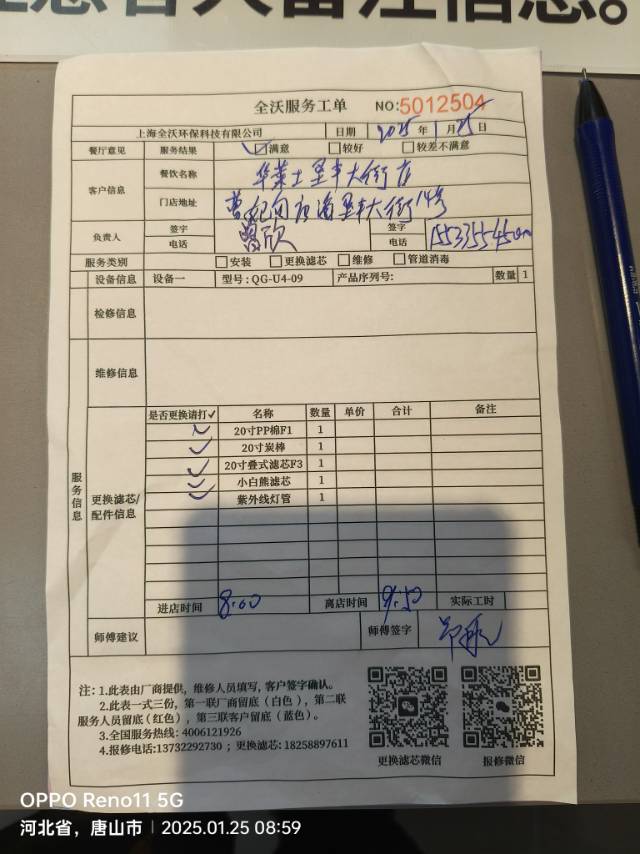 注信息。
全沃服务工单 NO:5012504
上海全沃环保科技有限公司 日期 2025年1月25日
餐厅意见 服务结果 ☑满意 □较好 □较差不满意
客户信息 餐饮名称 华莱士垦丰大街店
门店地址 曹妃甸 海垦丰大街14号
负责人 签字 欣 签字
电话 电话
服务类别 □安装 □更换滤芯 □维修 □管道消毒
设备信息 设备一 型号:QG-U4-09 产品序列号: 数量 1
检修信息
维修信息
服务信息
更换滤芯/配件信息
是否更换请打✓ 名称 数量 单价 合计 备注
✓ 20寸PP棉F1 1
✓ 20寸炭棒 1
✓ 20寸叠式滤芯F3 1
✓ 小白熊滤芯 1
✓ 紫外线灯管 1
进店时间 8:00 离店时间 9:50 实际工时
师傅建议 师傅签字
注:1.此表由厂商提供,维修人员填写,客户签字确认。
2.此表一式三份,第一联厂商留底(白色),第二联
服务人员留底(红色),第三联客户留底(蓝色)。
3.全国服务热线:4006121926
4.报修电话:13732292730;更换滤芯:18258897611
更换滤芯微信 报修微信
OPPO Reno11 5G
河北省,唐山市 | 2025.01.25 08:59